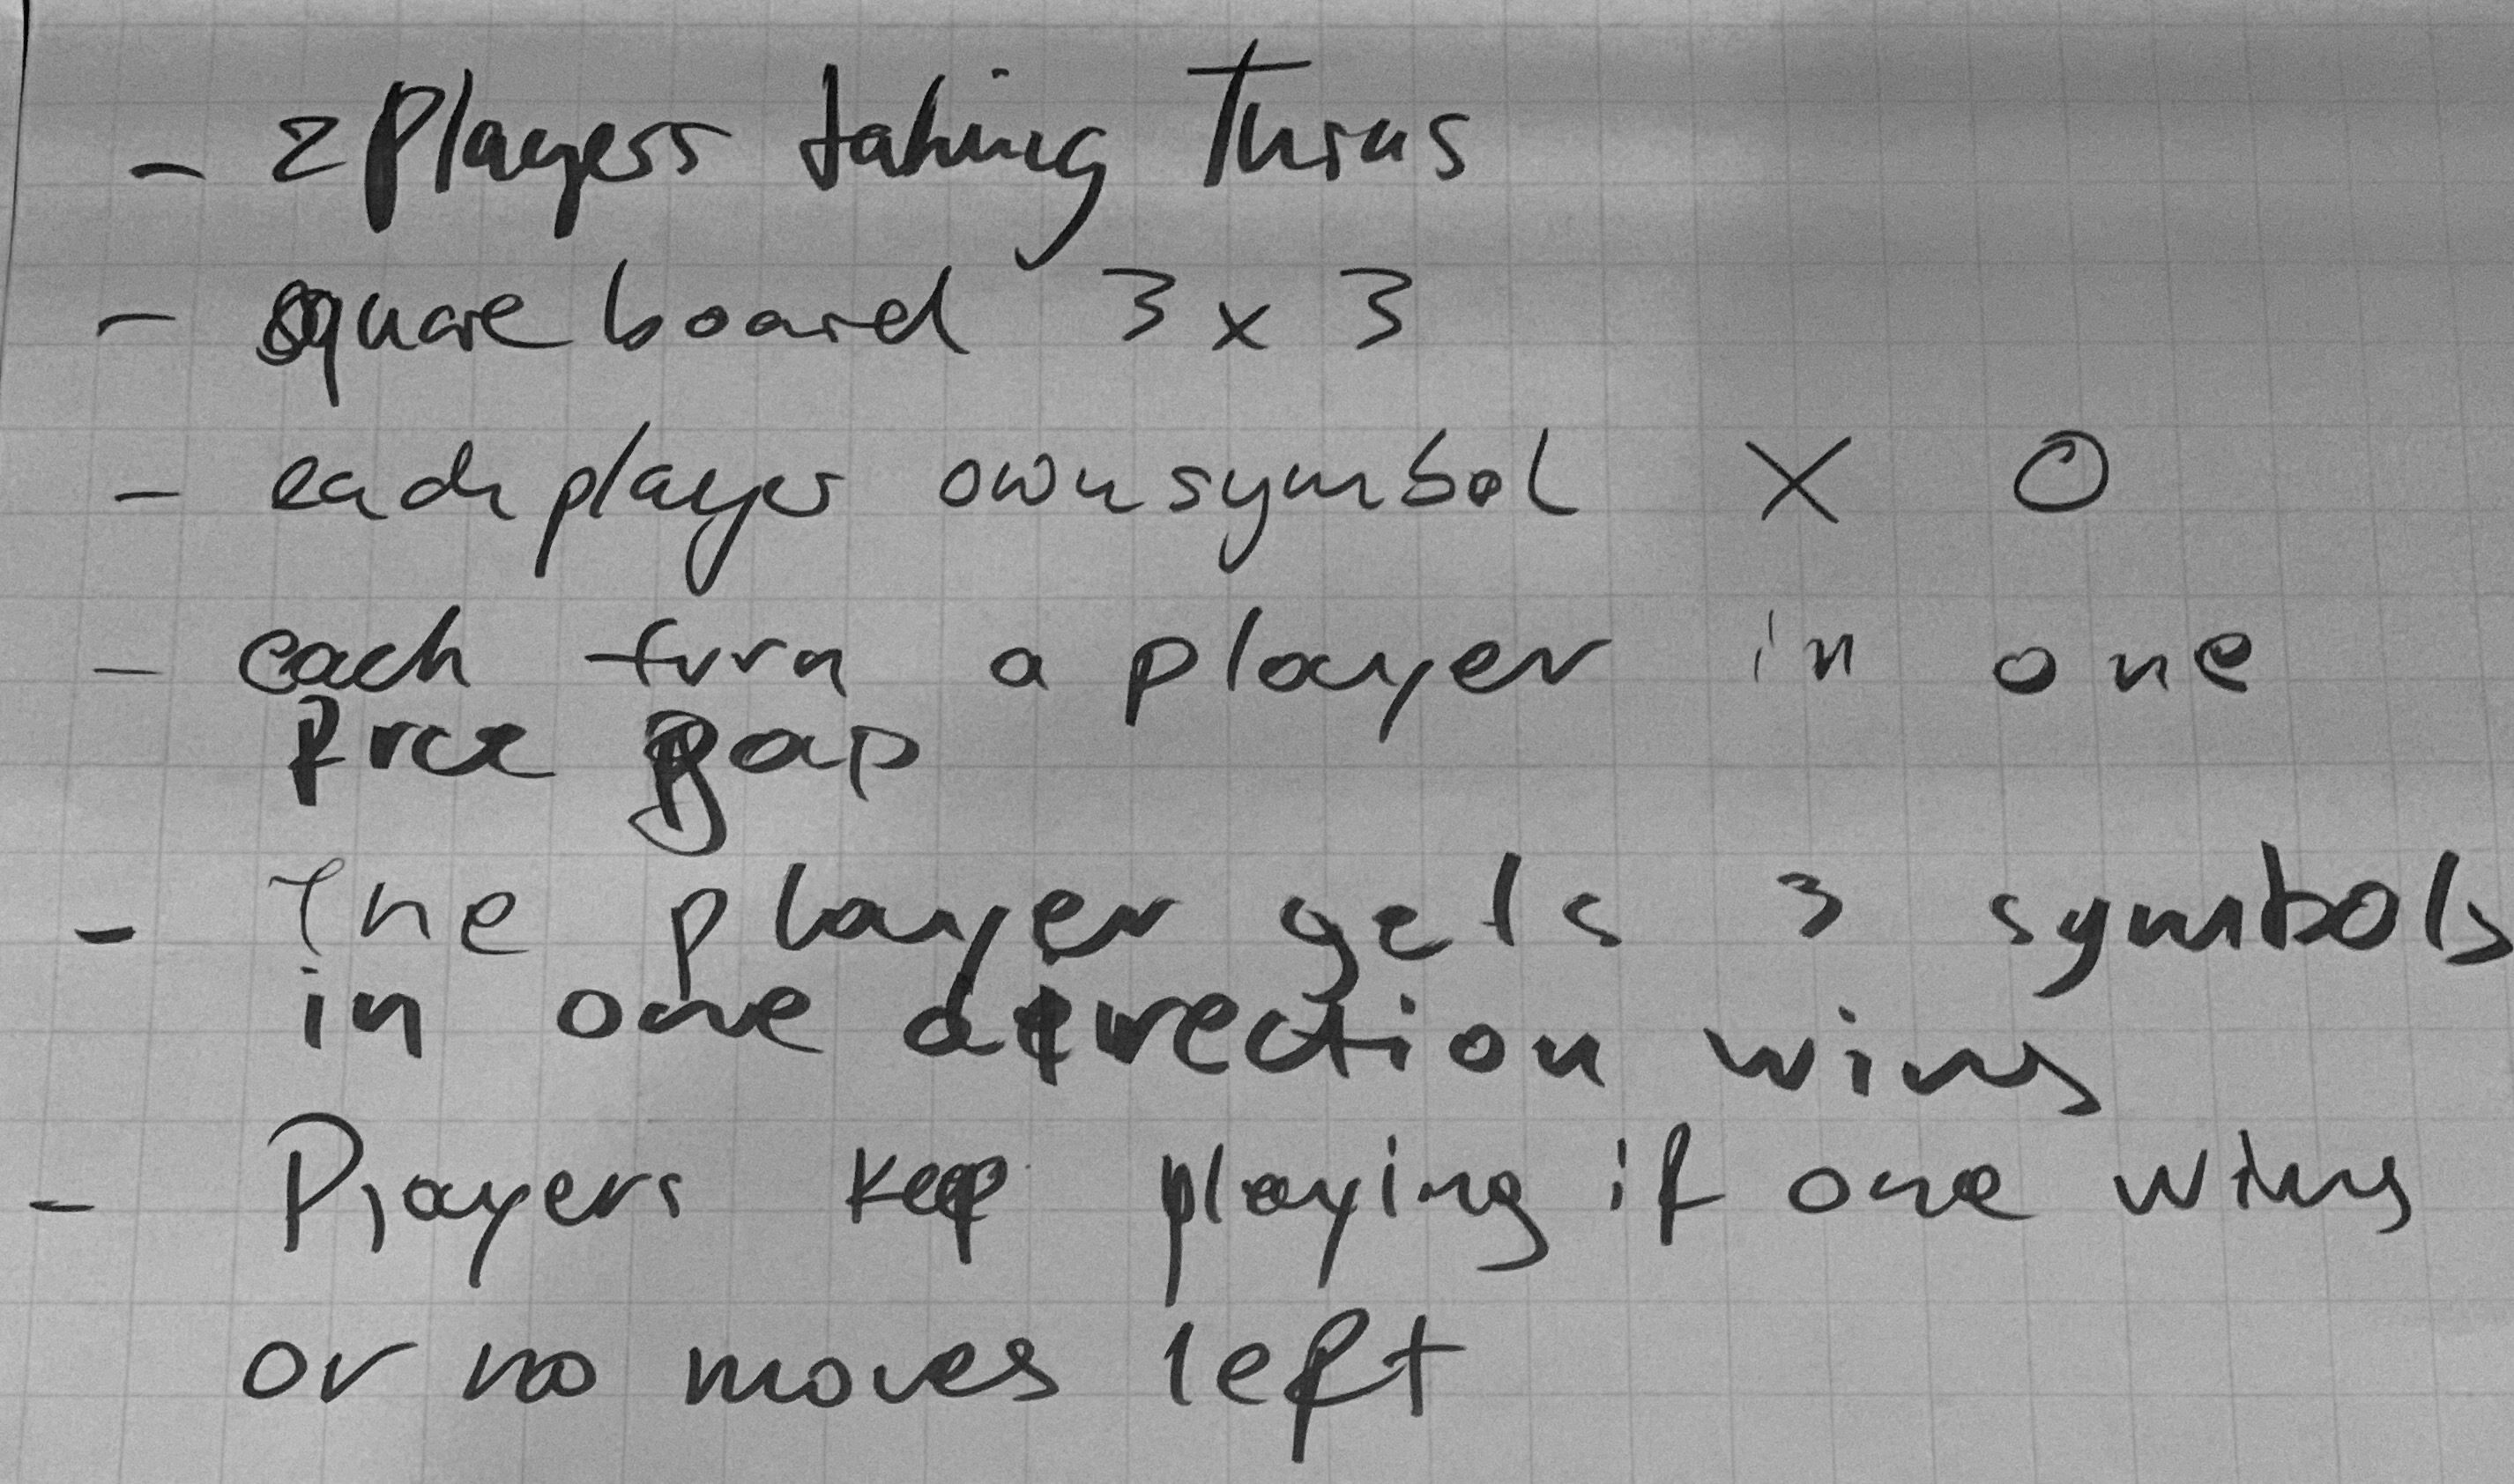 - 2 Players taking Turns
- square board 3 x 3
- each player own symbol X O
- each turn a player in one
free gap
- The player gets 3 symbols
in one direction wins
- Players keep playing if one wins
or no moves left